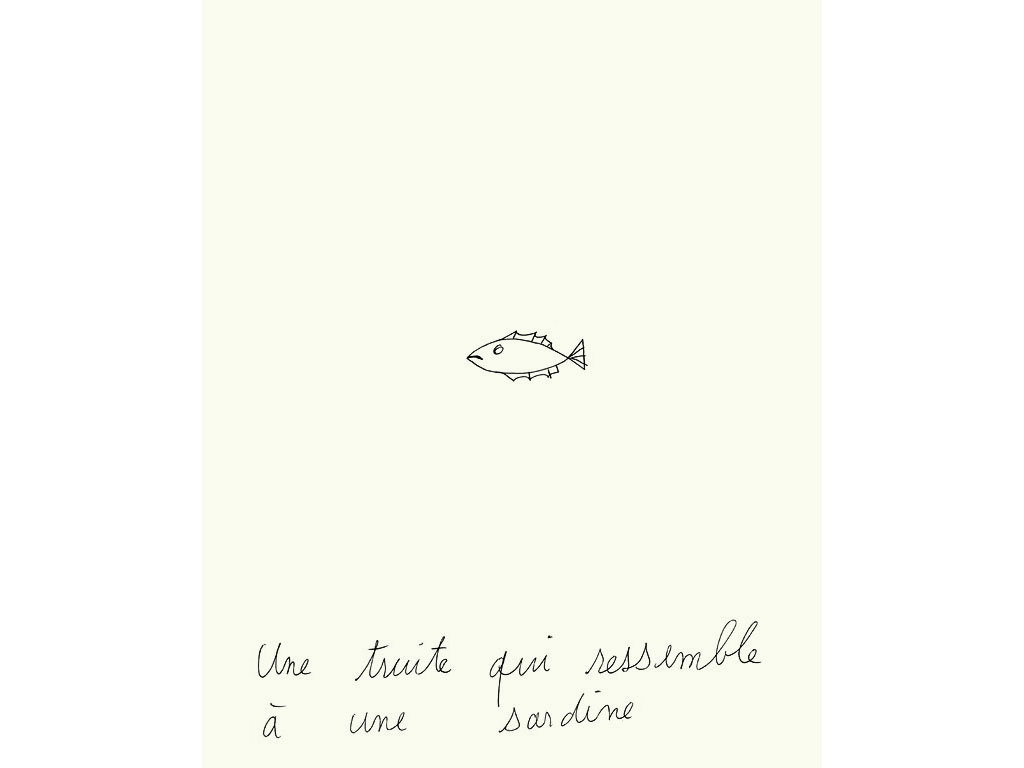 Une truite qui ressemble
à une sardine